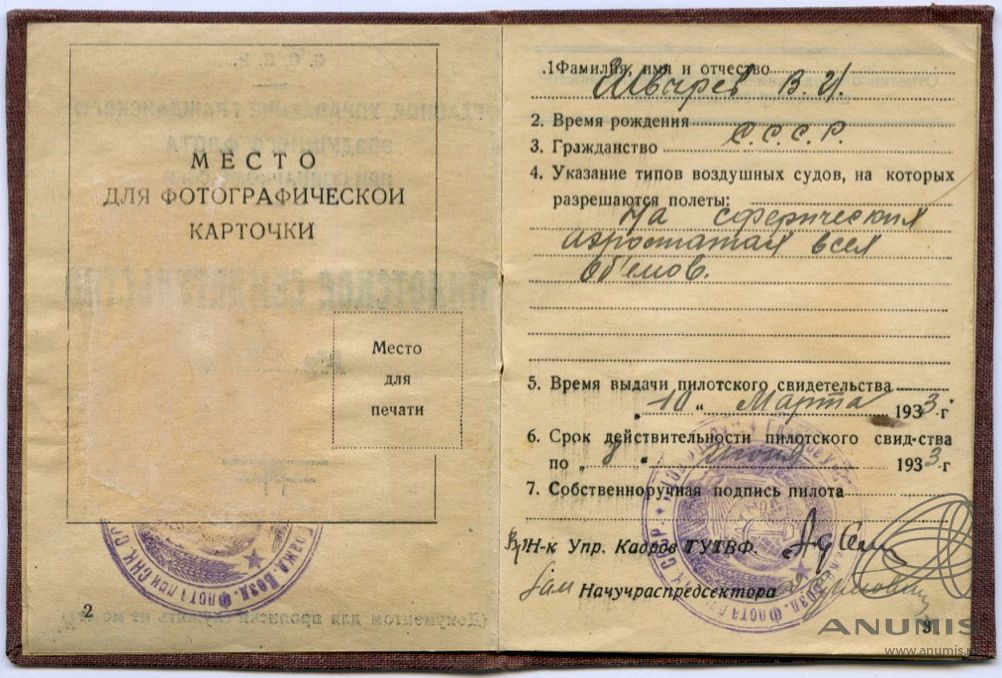 МЕСТО
ДЛЯ ФОТОГРАФИЧЕСКОЙ
КАРТОЧКИ
Место
для
печати
Гражд. Возд. Флота при СНК
2
.1Фамилия, имя и отчество
Шварев В. И.
2. Время рождения
3. Гражданство С.С.С.Р.
4. Указание типов воздушных судов, на которых
разрешаются полеты:
На сферических
аэростатах всех
об'емов.
5. Время выдачи пилотского свидетельства
„10“ Марта 1933 г
6. Срок действительности пилотского свид-ства
по „ “ 1933 г
7. Собственноручная подпись пилота
Н-к Упр. Кадров ГУГВФ.
Зам Начучраспредсектора
3
ANUMIS
www.anumis.ru